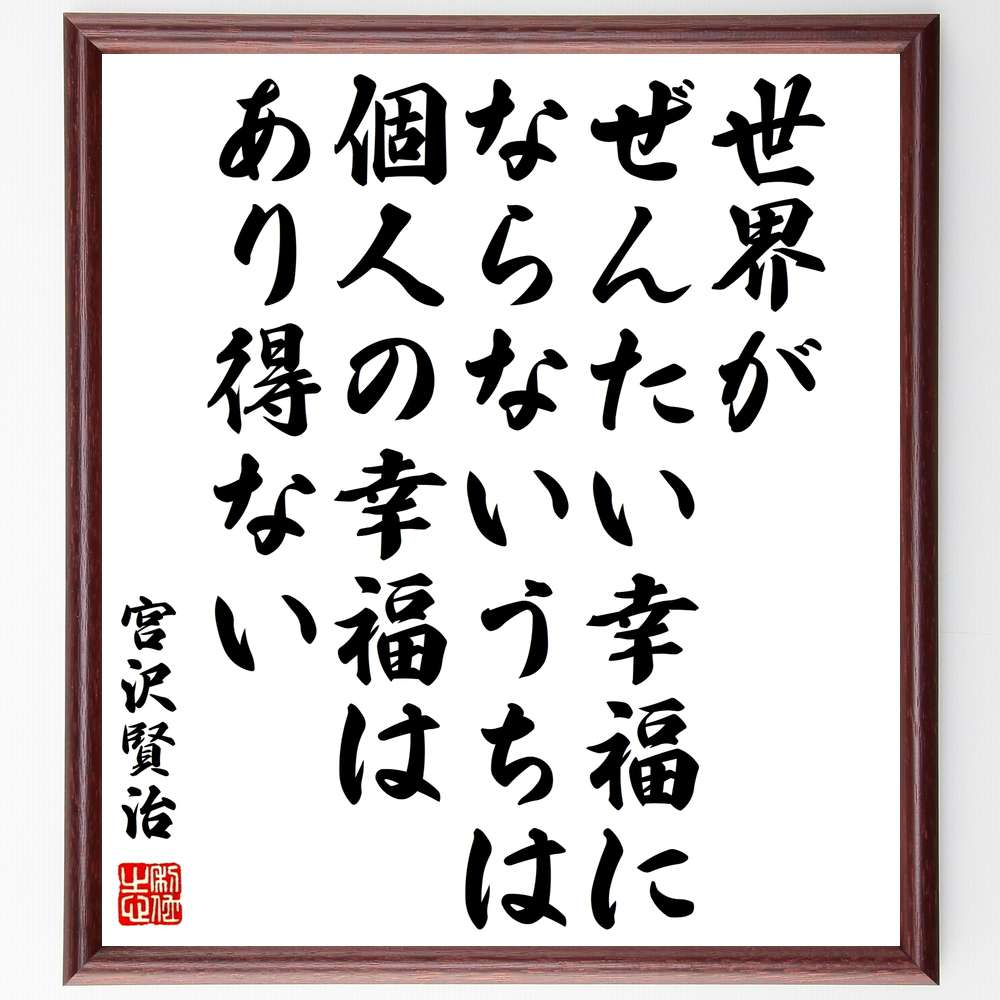 世界が
ぜんたい幸福に
ならないうちは
個人の幸福は
あり得ない
宮沢賢治